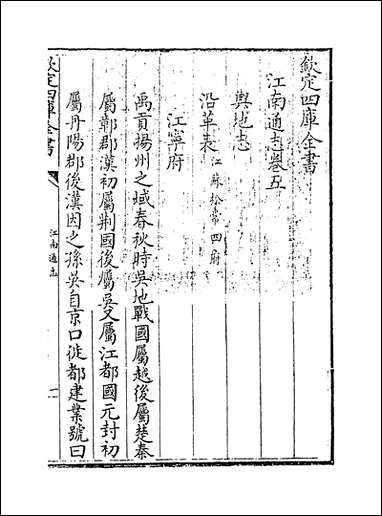 欽定四庫全書
江南通志卷五
輿地志
沿革表江蘇松常四府
江寧府
禹貢揚州之域春秋時吳地戰國屬越後屬楚秦
屬鄣郡漢初屬荆國後屬吳又屬江都國元封初
屬丹陽郡後漢因之孫吳自京口徙都建業號曰
欽定四庫全書
江南通志
一